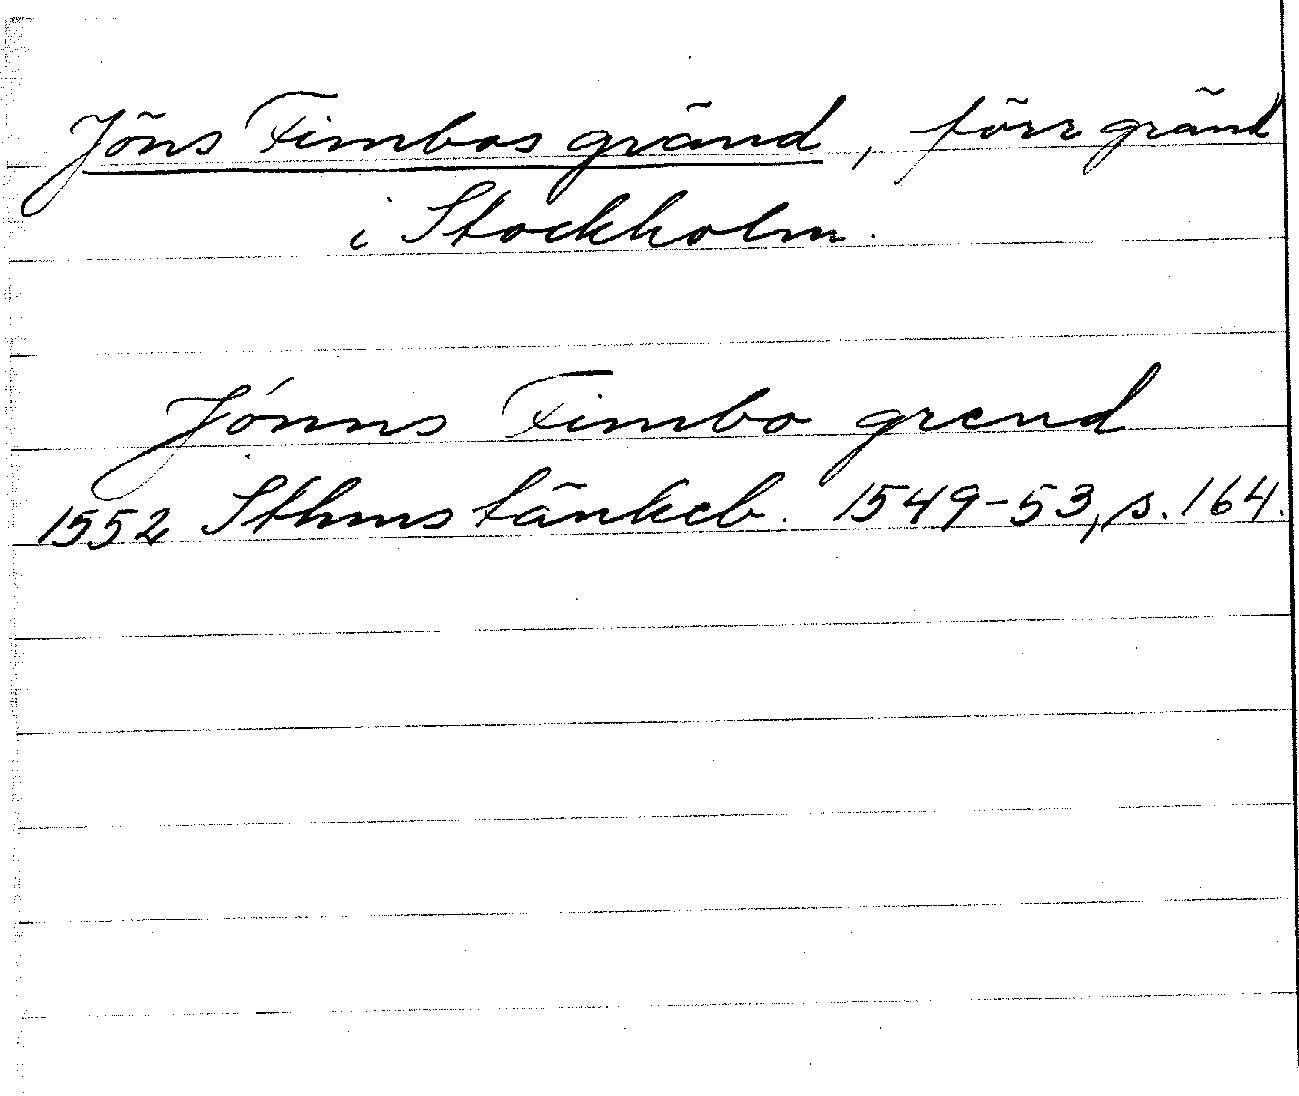 Jöns Fimbos gränd, förr gränd
i Stockholm.
Jónns Fimbo grend
1552 Sthms tänkeb. 1549-53, s. 164.